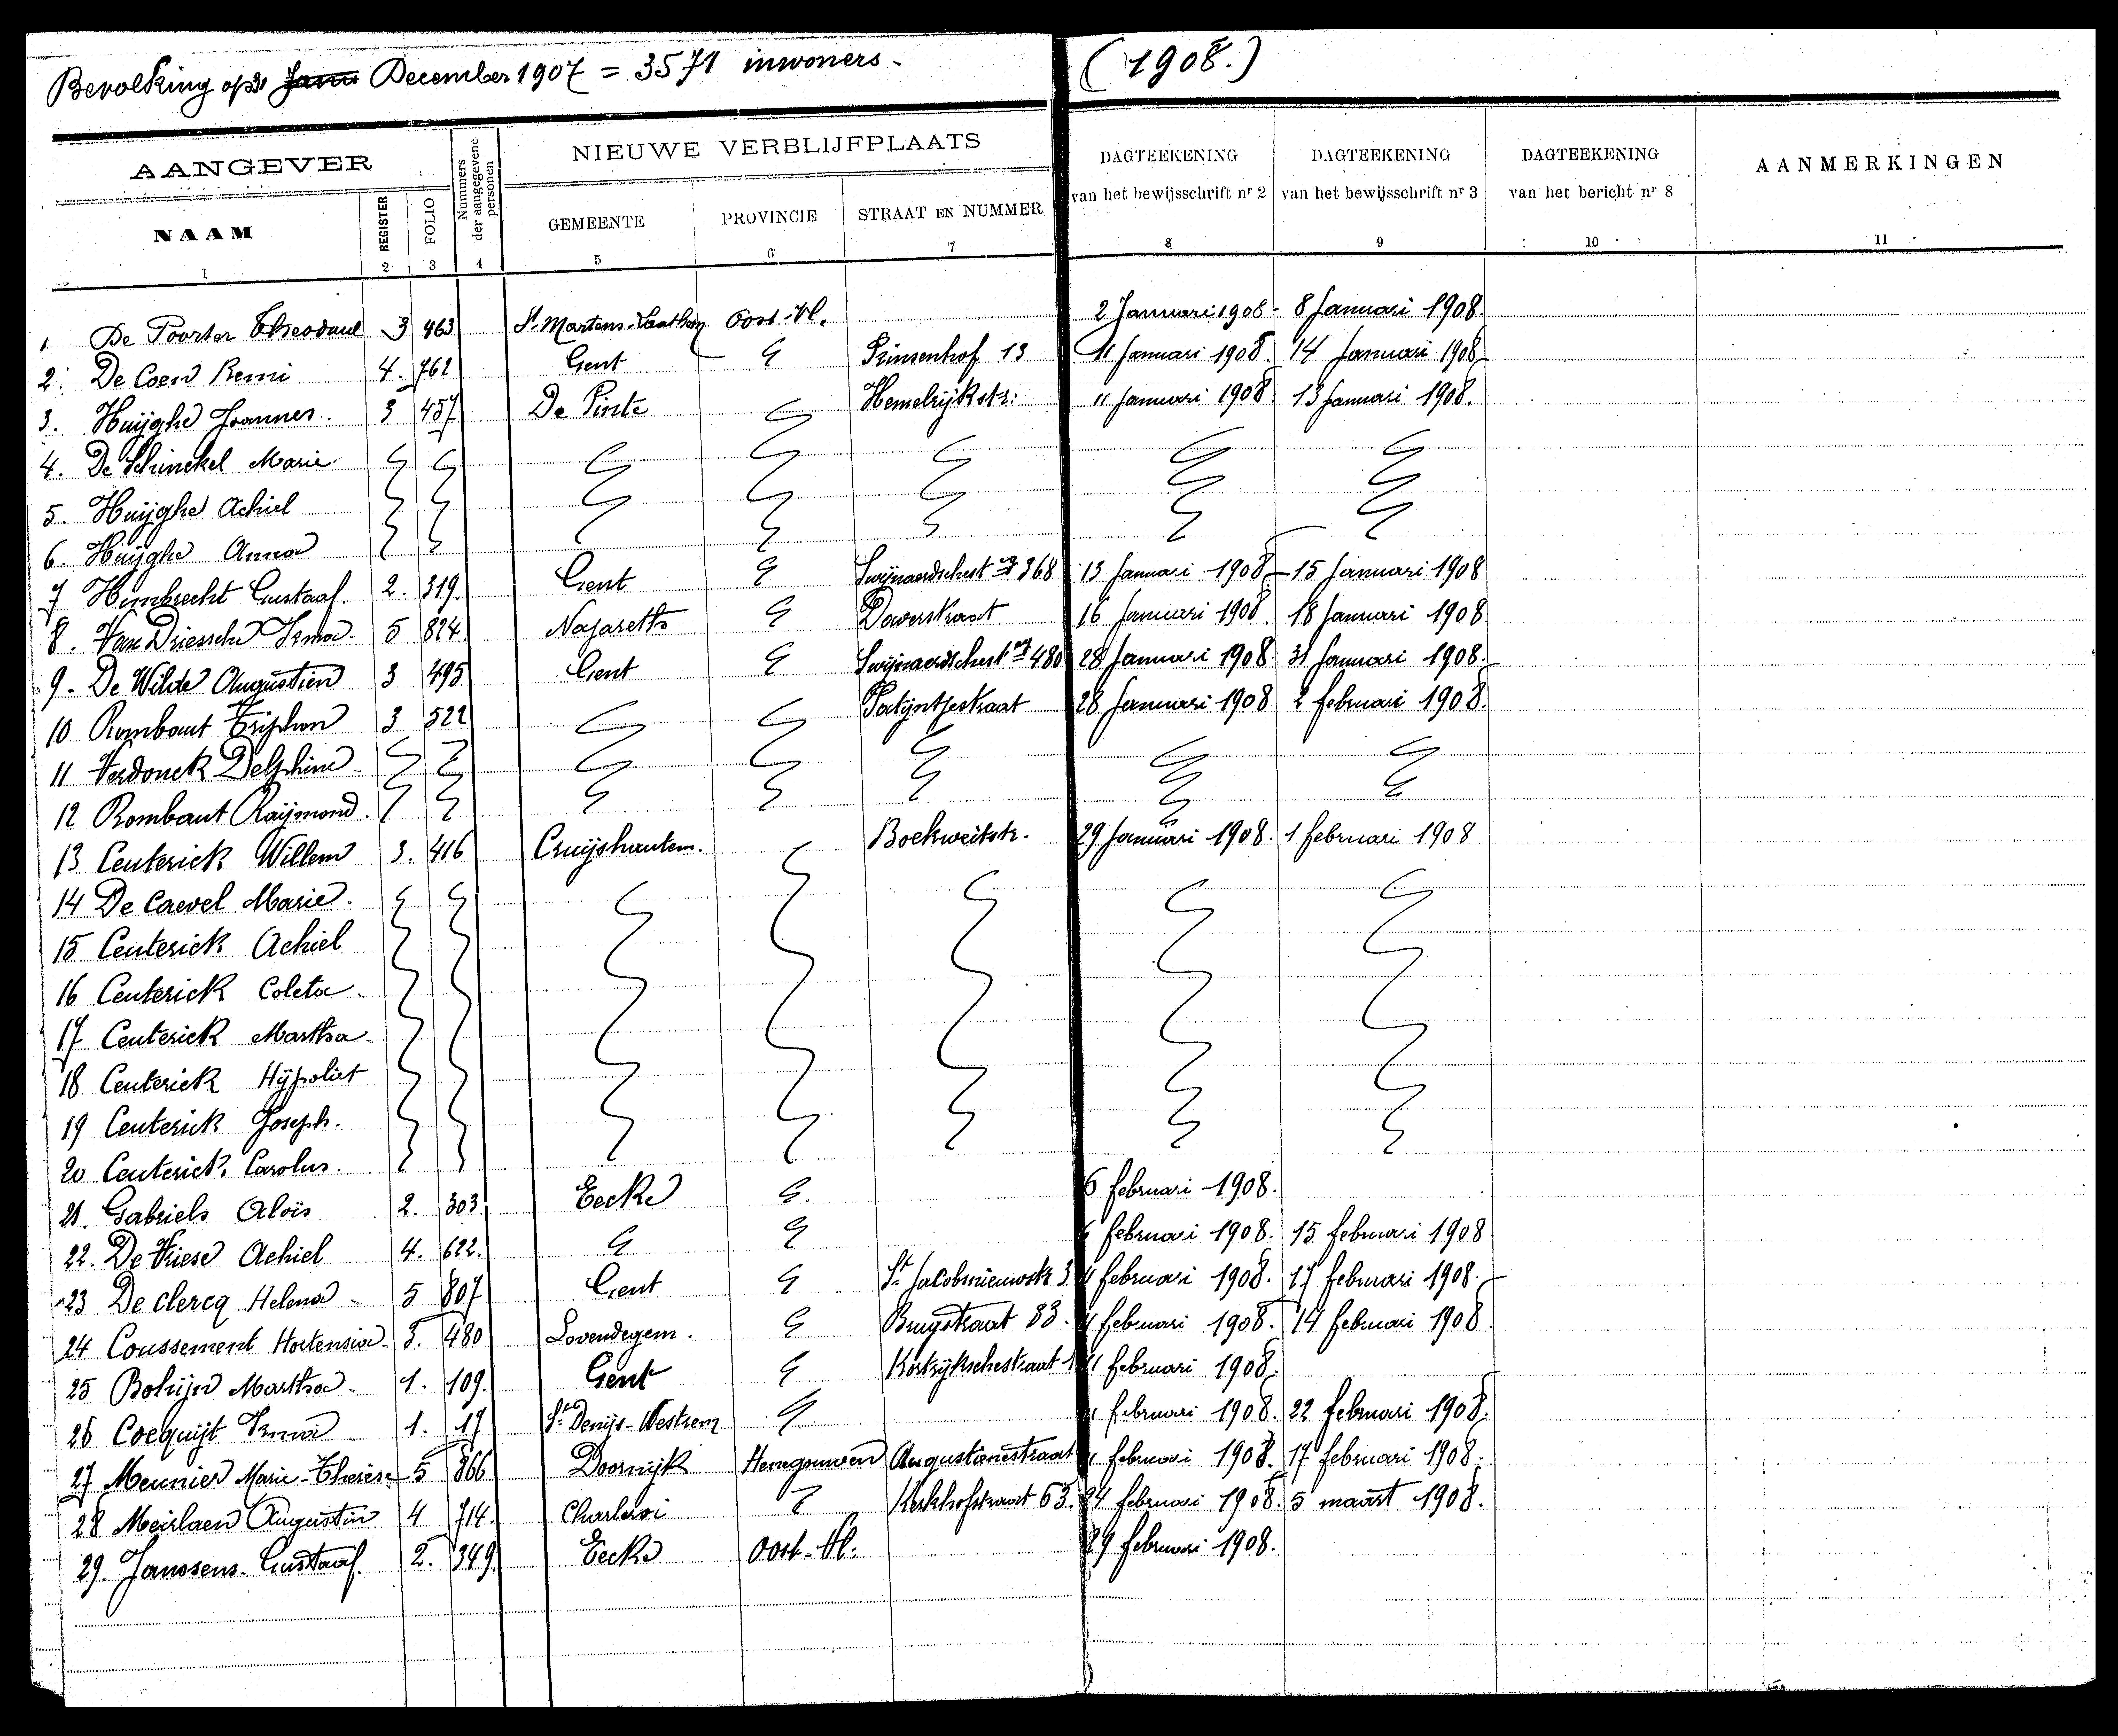 Bevolking op 31 Janu December 1907 = 3571 inwoners - (1908.)
AANGEVER
Nummers der aangegevene personen
NIEUWE VERBLIJFPLAATS
DAGTEEKENING van het bewijsschrift nr 2
DAGTEEKENING van het bewijsschrift nr 3
DAGTEEKENING van het bericht nr 8
AANMERKINGEN
NAAM REGISTER FOLIO GEMEENTE PROVINCIE STRAAT EN NUMMER
1 2 3 4 5 6 7 8 9 10 11
1. De Poorter Theoduul 3 463 St Martens-Laathem Oost-Vl. 2 Januari 1908. 8 Januari 1908.
2. De Coen Remi 4. 762 Gent Prinsenhof 13 11 Januari 1908. 14 Januari 1908
3. Huijghe Joannes. 3 457 De Pinte Hemelrijkstr. 11 Januari 1908 13 Januari 1908.
4. De Schinckel Marie.
5. Huijghe Achiel
6. Huijghe Anna
7 Hembrecht Gustaaf. 2. 319. Gent Swijnaerdschest nr 368 13 Januari 1908 15 Januari 1908
8. Van Driessche Irma. 5 824. Nazareth Dorverstraat 16 Januari 1908. 18 Januari 1908
9. De Wilde Augustien 3 495 Gent Swijnaerdschest nr 480 28 Januari 1908. 31 Januari 1908.
10 Rombaut Triphon 3 522 Patijntjestraat 28 Januari 1908 2 februari 1908.
11 Verdonck Delphine
12 Rombaut Raijmond.
13 Centerick Willem 3. 416 Cruijshautem. Boekweitstr. 29 Januari 1908. 1 februari 1908
14 De Caevel Marie.
15 Centerick Achiel
16 Centerick Coleta
17 Centerick Martha
18 Centerick Hÿpoliet
19 Centerick Joseph.
20 Centerick Carolus.
21. Gabriels Aloïs 2. 303. Eecke 6 februari 1908.
22. De Vriese Achiel 4. 622. 6 februari 1908. 15 februari 1908
23 De clercq Helena 5 807 Gent St Jacobsnieuwstr 3 11 februari 1908. 17 februari 1908.
24 Coussement Hortensia 3. 480 Lovendegem. Brugstraat 83. 11 februari 1908. 14 februari 1908.
25 Bohijn Martha 1. 109. Gent Kortrijkschestraat 1 11 februari 1908.
26 Coequijt Irma 1. 17 St Denijs-Westrem 11 februari 1908. 22 februari 1908.
27 Meunier Marie-Therèse 5 866 Doornijk Henegouwen Augustinestraat 11 februari 1908. 17 februari 1908.
28 Meirlaen Augustin 4 714. Charleroi Kerkhofstraat 63. 24 februari 1908. 5 maart 1908.
29. Janssens Gustaaf. 2. 349. Eecke Oost-Vl. 29 februari 1908.